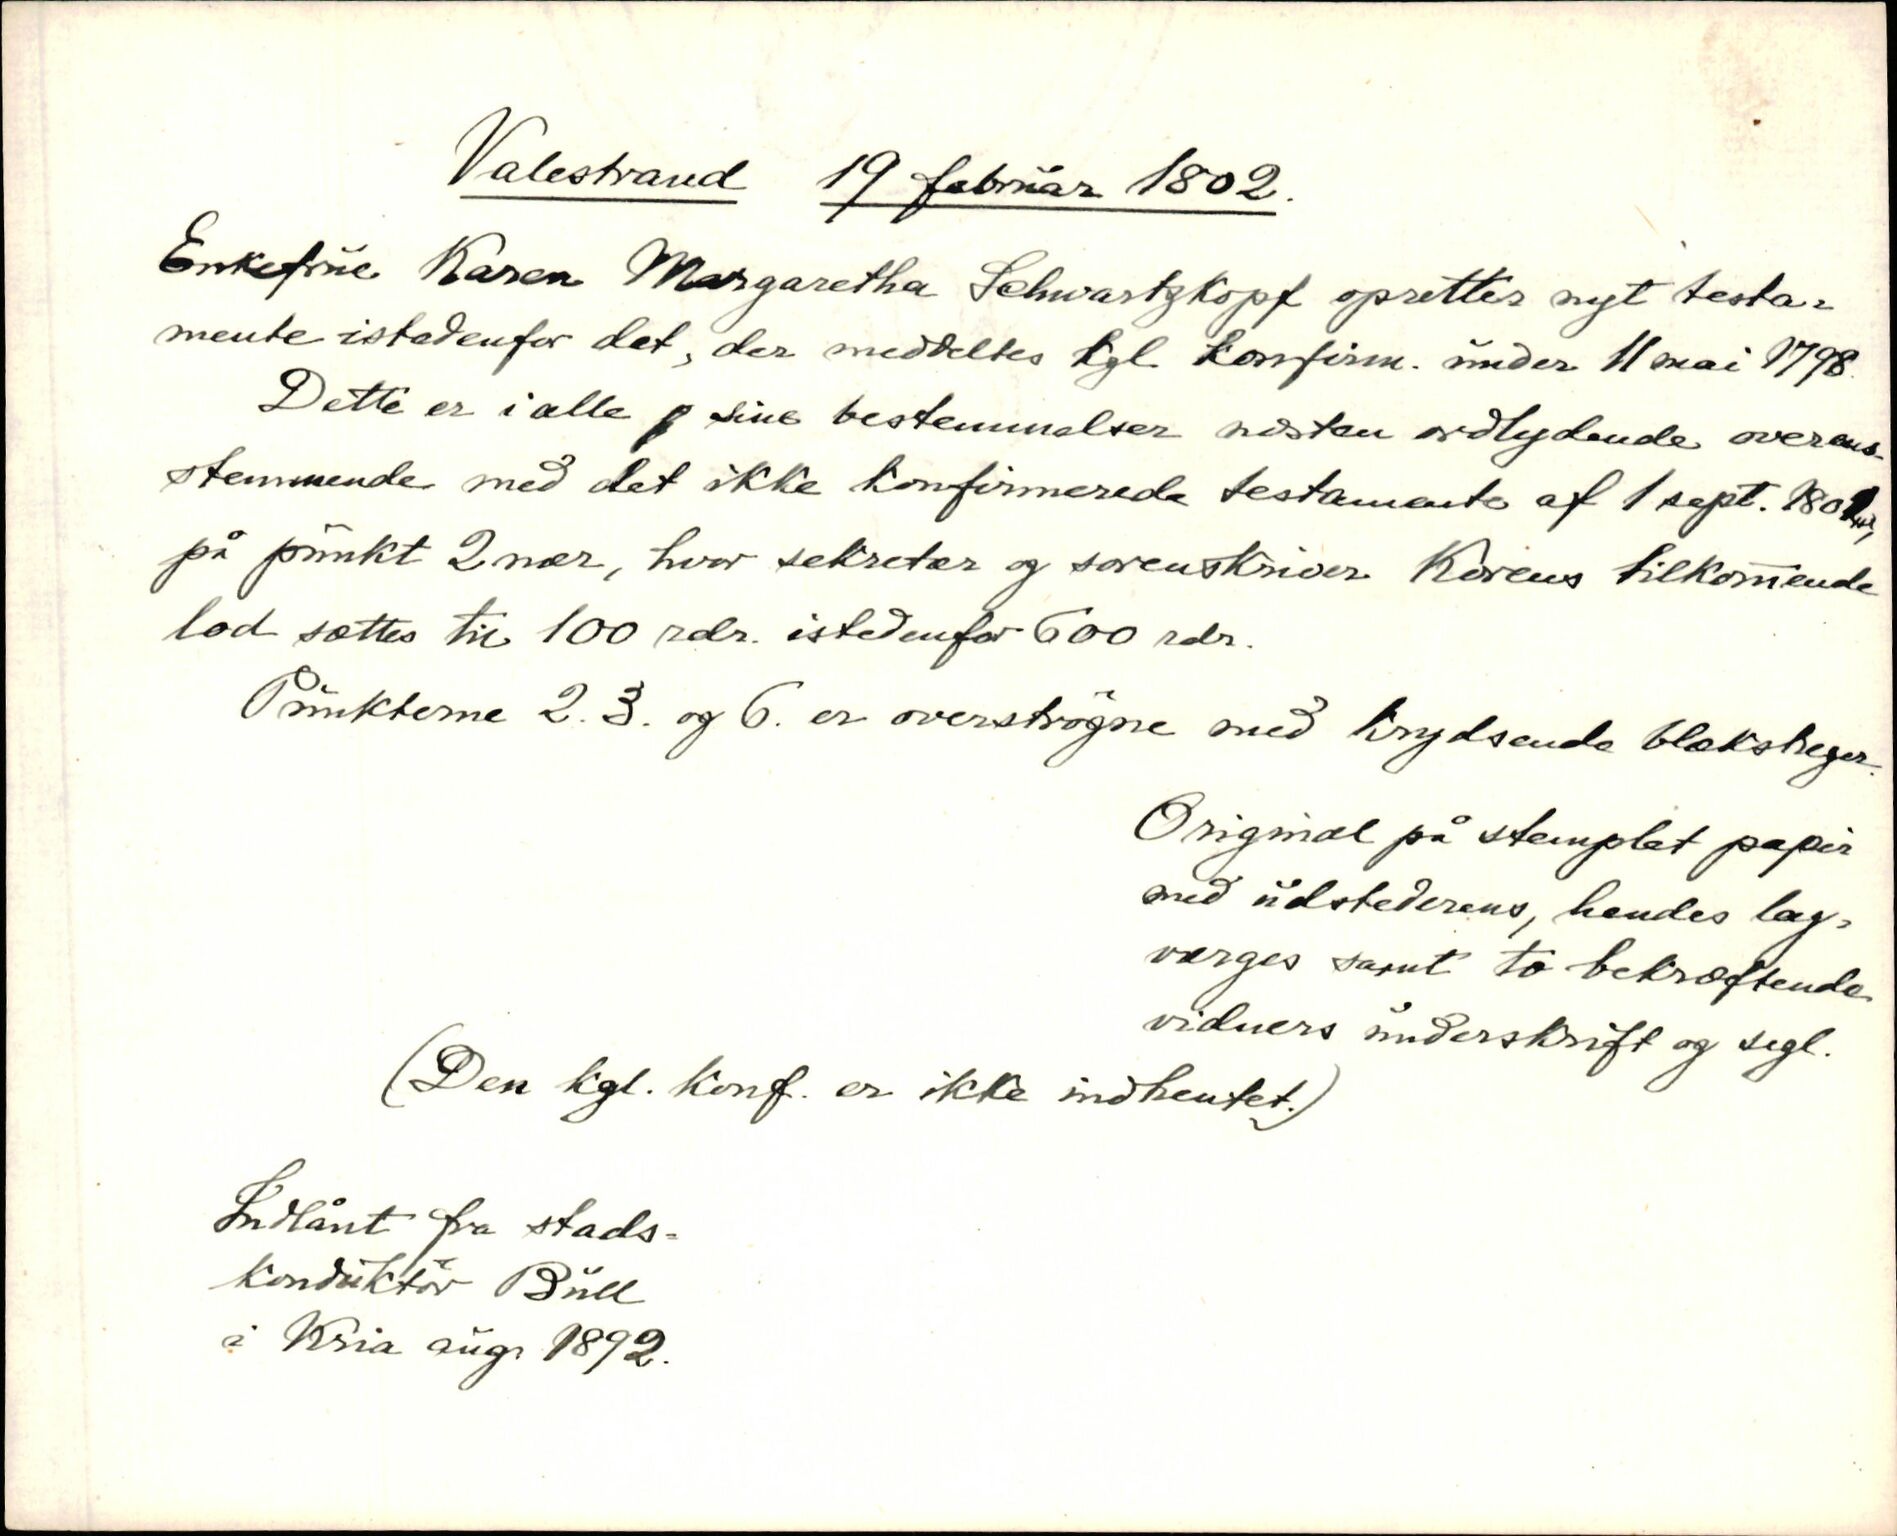 Valestrand 19 februar 1802.
Enkefrue Karen Margaretha Schwartzkopf opretter nyt testa-
mente istedenfor det, der meddeltes kgl konfirm. under 11 mai 1798.
Dette er i alle sine bestemmelser næsten ordlydende overens-
stemmende med det ikke konfirmerede testamente af 1 sept. 1801,
på punkt 2 nær, hvor sekretær og sorenskriver Korens tilkom̄ende
lod sættes til 100 rdr. istedenfor 600 rdr.
Punkterne 2. 3. og 6. er overstrøgne med krydsende blækstreger.
Original på stemplet papir
med udstederens, hendes lag-
værges samt to bekræftende
vidners underskrift og segl.
(Den kgl. konf. er ikke indhentet.)
Indlånt fra stads-
konduktör Bull
i Kria aug. 1892.